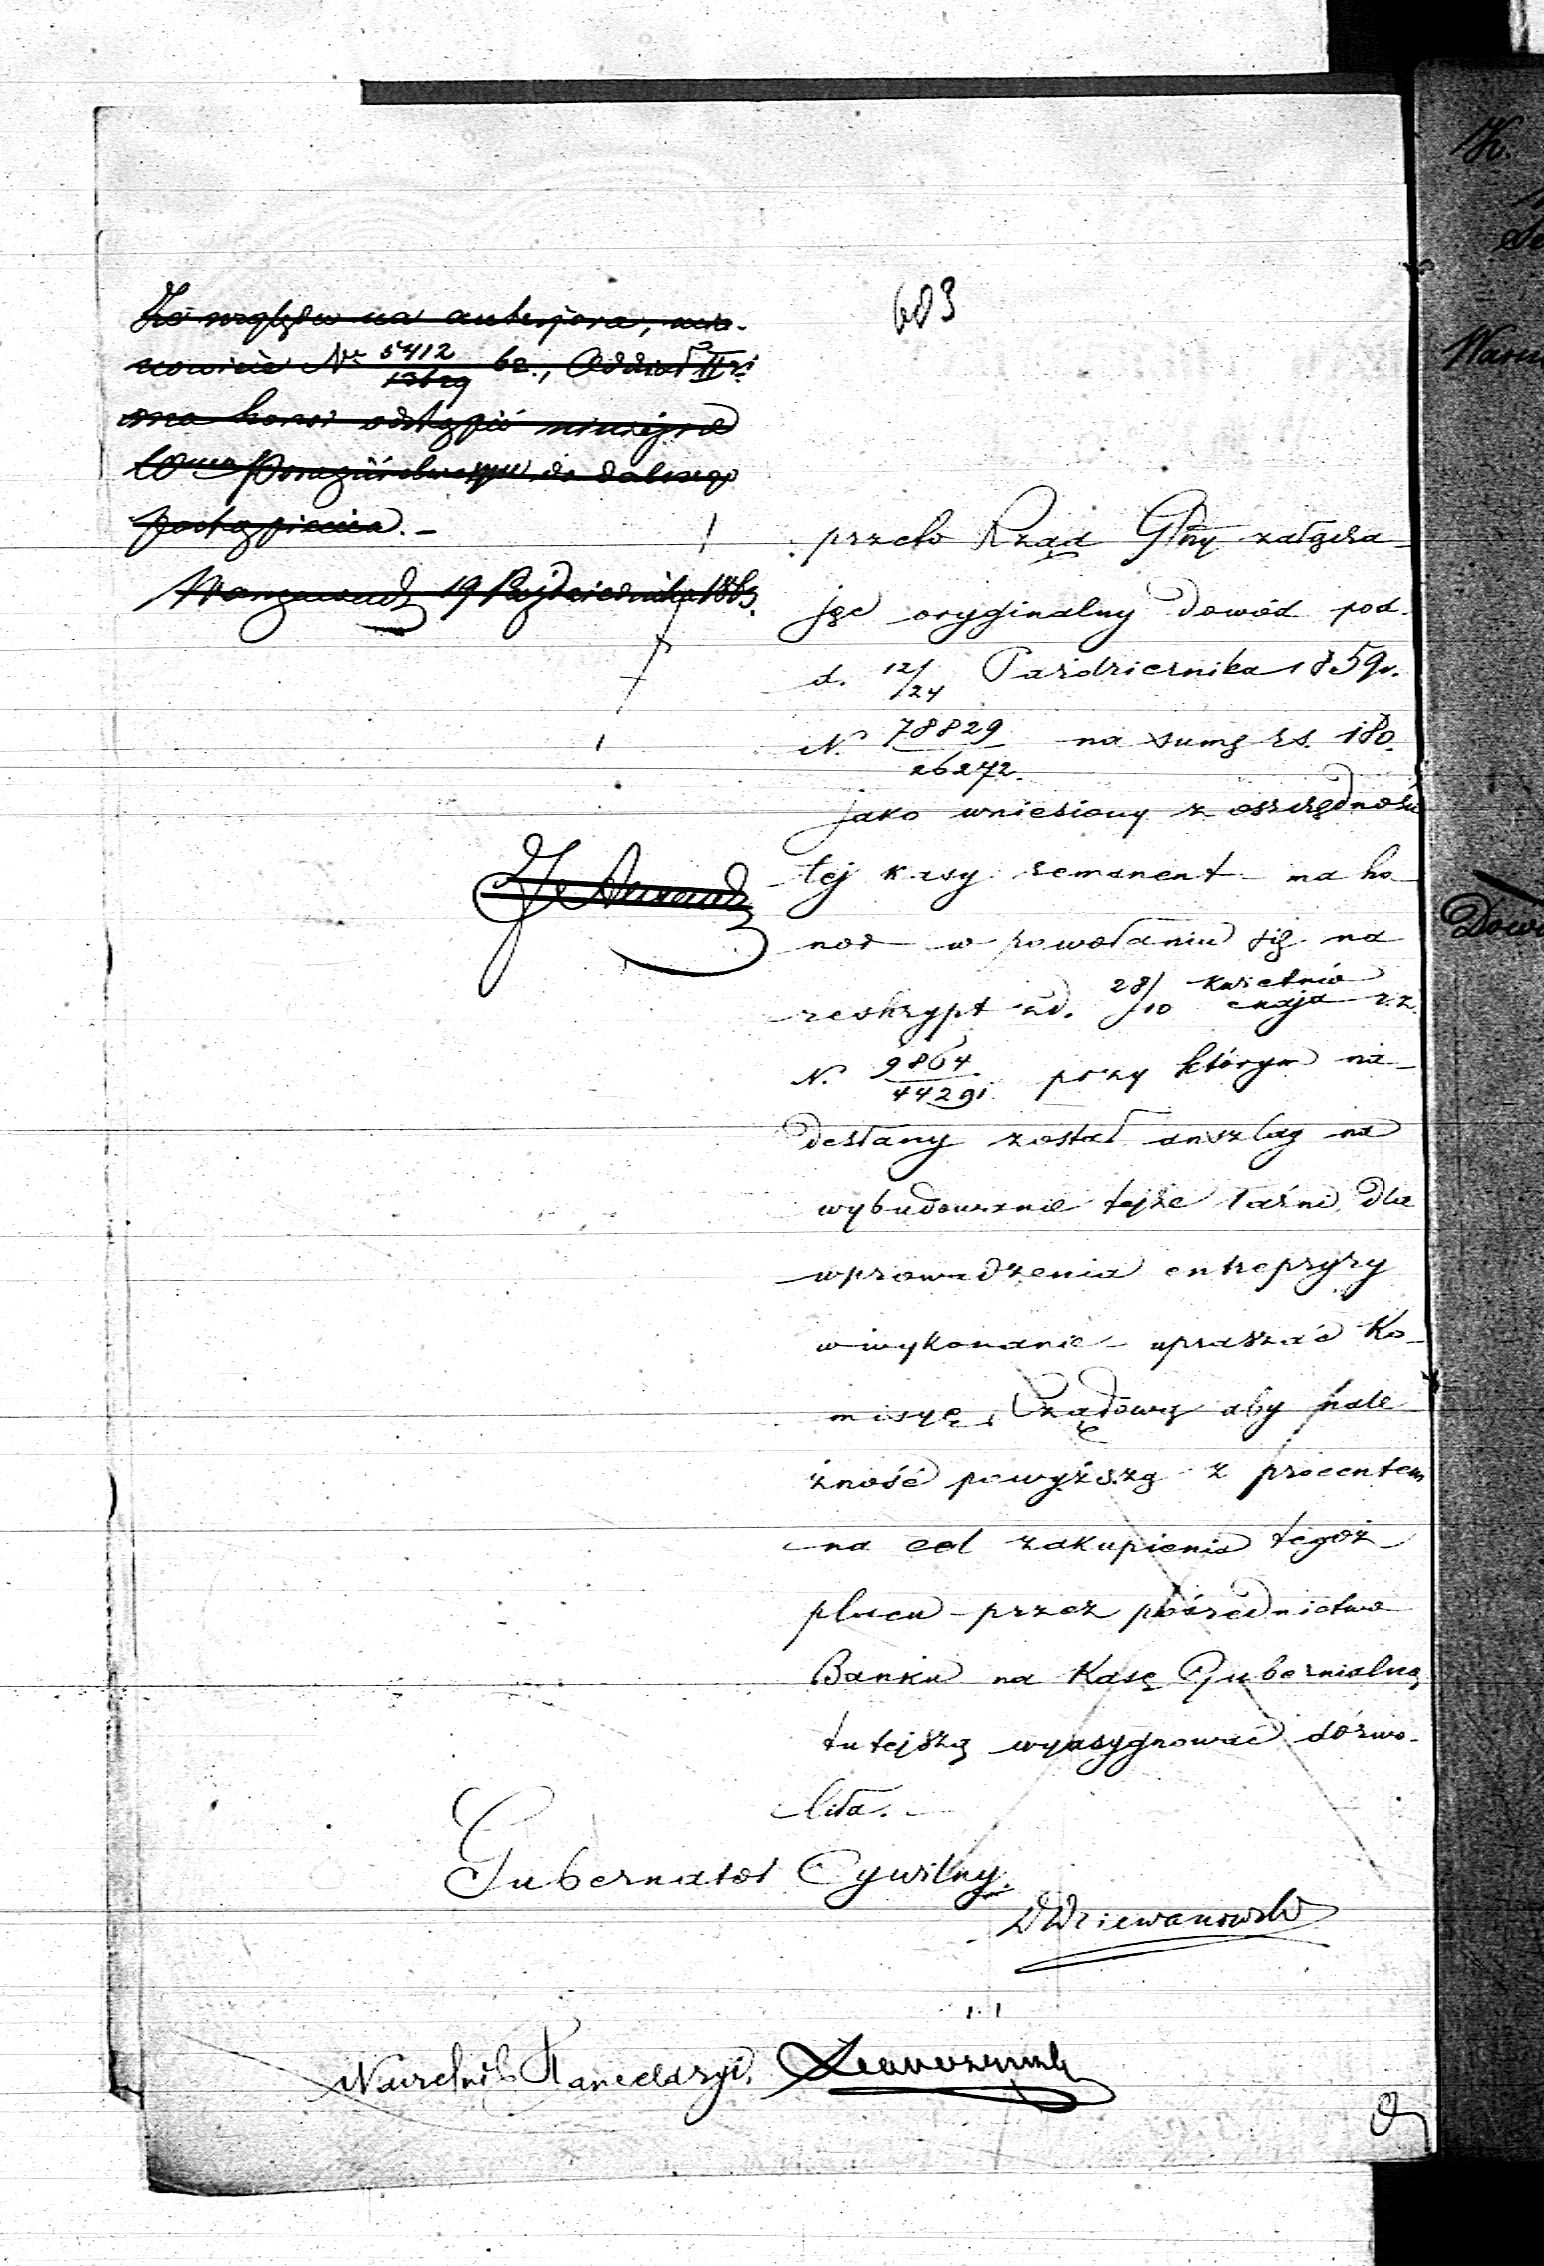 603
Ze względu na anteriora, mia-
nowicie № 5412/13629 62., Oddział II
ma honor odstąpić niniejsze
do dalszego
postąpienia. -
Warszawa d. 19 Października 1863.
przeto Rząd Glny załącza-
jąc oryginalny dowód pod
d. 12/24 Pazdziernika 1859 r.
N. 78829/26272 na sumę rs. 180.
jako wniesiony z oszczędności
tej kasy remanent - ma ho-
nor w powołaniu się na
reskrypt z d. 28/10 kwietnia/maja r. z.
N. 9864/44291 przy którym na-
desłany został anszlag na
wybudowanie tejże łaźni, dla
wprowadzenia entrepryzy
w wykonanie - upraszać Ko-
misyę Rządową aby nale-
żność powyższą z procentem
na cel zakupienia tegoż
placu - przez pośrednictwo
Banku na Kasę Gubernialną
tutejszą wyasygnować dozwo-
liła. -
Gubernator Cywilny.
D Dziewanowski
Naczelnik Kancelaryi.
K.
Dowó